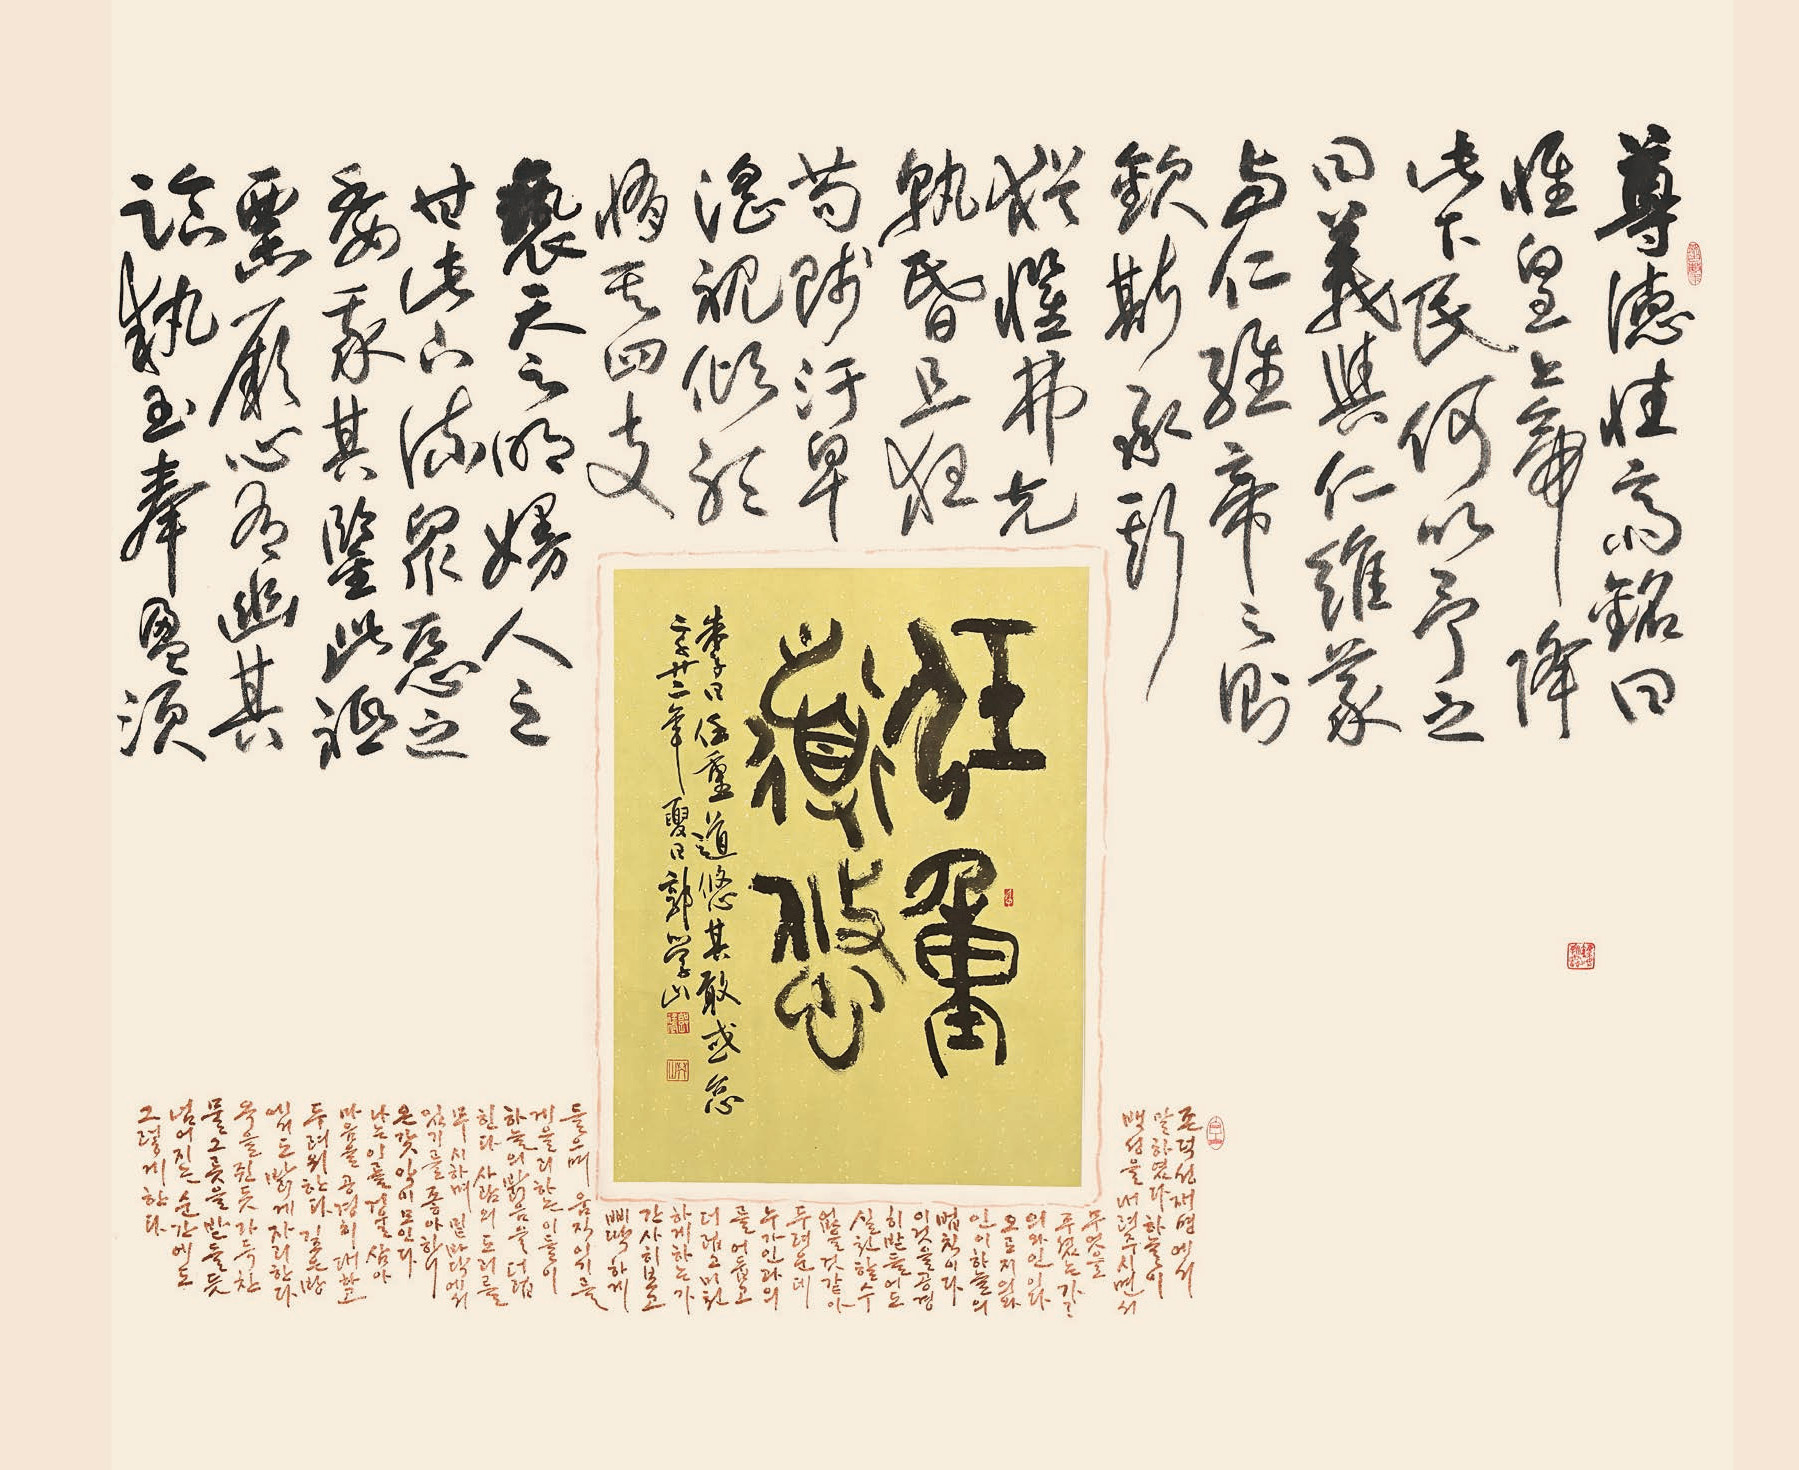 尊德性齋銘曰
惟皇上帝降
此下民何以予之
曰義與仁維義
與仁維帝之則
欽斯承斯
猶懼弗克
孰昏且狂
苟賤汙卑
淫視傾聽
惰其四支
褻天之明嫚人之
甘此下流衆惡之
委我其鑒此祗
栗厥心有幽其
臨執玉奉盈須
任重
道悠
朱子曰任重道悠其敢或怠
二千廿二年夏日郭學山
존덕성재명에서
말하였다 하늘이
백성을 내려주시면서
무엇을
주었는가
의와 인이다
오로지 의와
인이 하늘의
법칙이다
이것을 공경
히 받들어도
실천할 수
없을 것 같아
두려운데
누가 인과 의
를 어둡고
더럽고 미천
하게 하는가
간사히 보고
삐딱하게
들으며 움직이기를
게을리하는 이들이
하늘의 밝음을 더럽
힌다 사람의 도리를
무시하며 밑바닥에서
있기를 좋아하니
온갖 악이 모인다
나는 이를 거울 삼아
마음을 공경히 대하고
두려워한다 깊은 방
에서도 밝게 자리한다
옥을 쥔 듯 가득 찬
물그릇을 받들 듯
넘어지는 순간에도
그렇게 한다